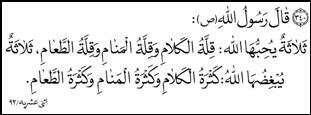 (٣٤٠) قَالَ رَسُولُ اللّٰهِ (ص):
ثَلَاثَةٌ يُحِبُّهَا اللّٰهُ: قِلَّةُ الْكَلَامِ وَقِلَّةُ الْمَنَامِ وَقِلَّةُ الطَّعَامِ. ثَلَاثَةٌ
يُبْغِضُهَا اللّٰهُ: كَثْرَةُ الْكَلَامِ وَكَثْرَةُ الْمَنَامِ وَكَثْرَةُ الطَّعَامِ.
اثنی عشریه / ۹۲